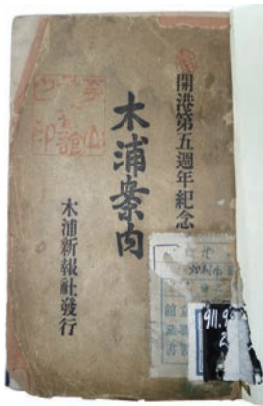 開港第五週年紀念
木浦案内
木浦新報社發行
911.9